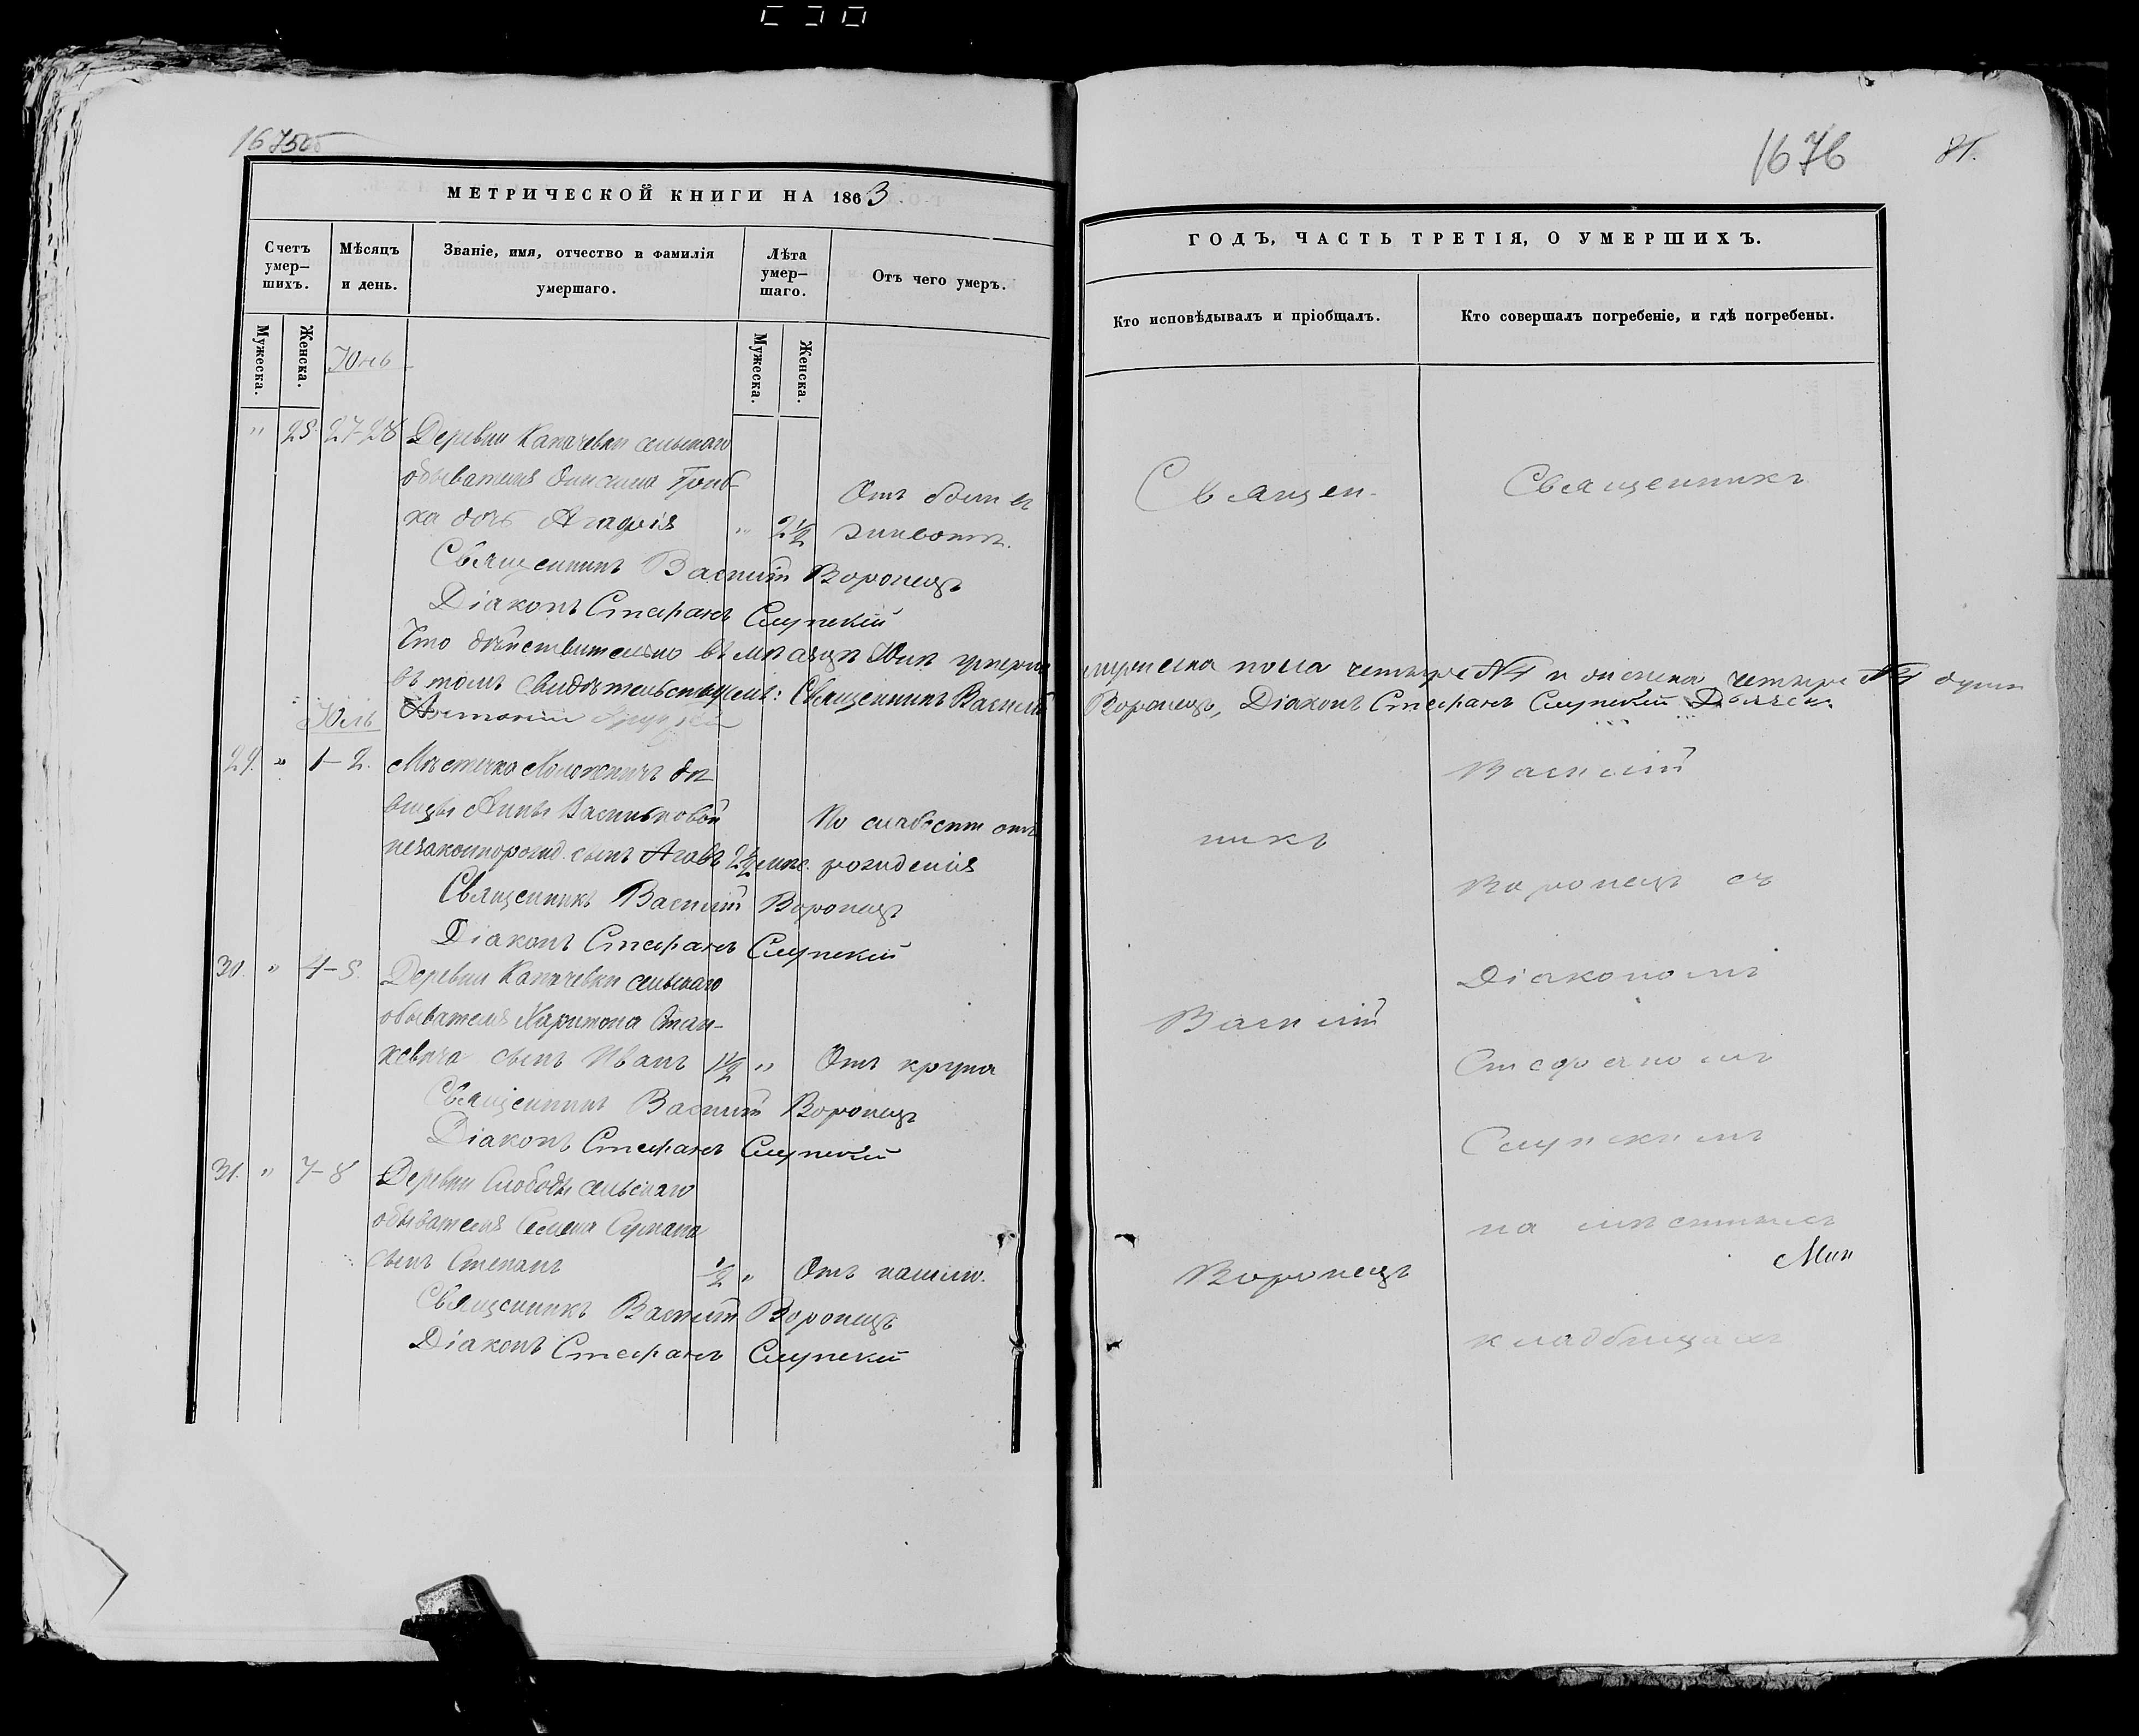 1675об
МЕТРИЧЕСКОЙ КНИГИ НА 1863
Счетъ умер–шихъ.
Мѣсяцъ и день.
Званіе, имя, отчество и фамилія умершаго.
Лѣта умер–шаго.
Отъ чего умеръ.
Мужеска.
Женска.
Мужеска.
Женска.
Юнь
" 25. 27-28 Деревни Капачевки сельскаго
обывателя Онисима
ка дочь Агафія " 2½
Отъ боли въ
животѣ.
Священникъ Василій Воронецъ
Діаконъ Стефанъ Слупскій
Что дѣйствительно въ мѣсяцѣ Юнѣ умерло
въ томъ свидѣтельствуемъ: Священникъ Василій
Юль
29. " 1-2. Мѣстечка дѣ-
вицы Анны Васильковой
незаконнорожд. сынъ 2½ мѣс.
По слабости отъ
рожденія
Священникъ Василій Воронецъ
Діаконъ Стефанъ Слупскій
30. " 4-5. Деревни Капачевки сельскаго
обывателя Харитона Стан-
кевича сынъ Иванъ 1½ " Отъ крупа
Священникъ Василій Воронецъ
Діаконъ Стефанъ Слупскій
31. " 7-8 Деревни Слободы сельскаго
обывателя Семена
сынъ Степанъ ½ " Отъ кашлю.
Священникъ Василій Воронецъ
Діаконъ Стефанъ Слупскій
1676
81.
ГОДЪ, ЧАСТЬ ТРЕТІЯ, О УМЕРШИХЪ.
Кто исповѣдывалъ и пріобщалъ.
Кто совершалъ погребеніе, и гдѣ погребены.
Священ-
Священникъ
мужеска пола четыре №4 и женска четыре №4 души
Воронецъ, Діаконъ Стефанъ Слупскій
Василій
никъ
Воронецъ съ
Діакономъ
Василій
Стефаномъ
Слупскимъ
на мѣстныхъ
Воронецъ
кладбищахъ